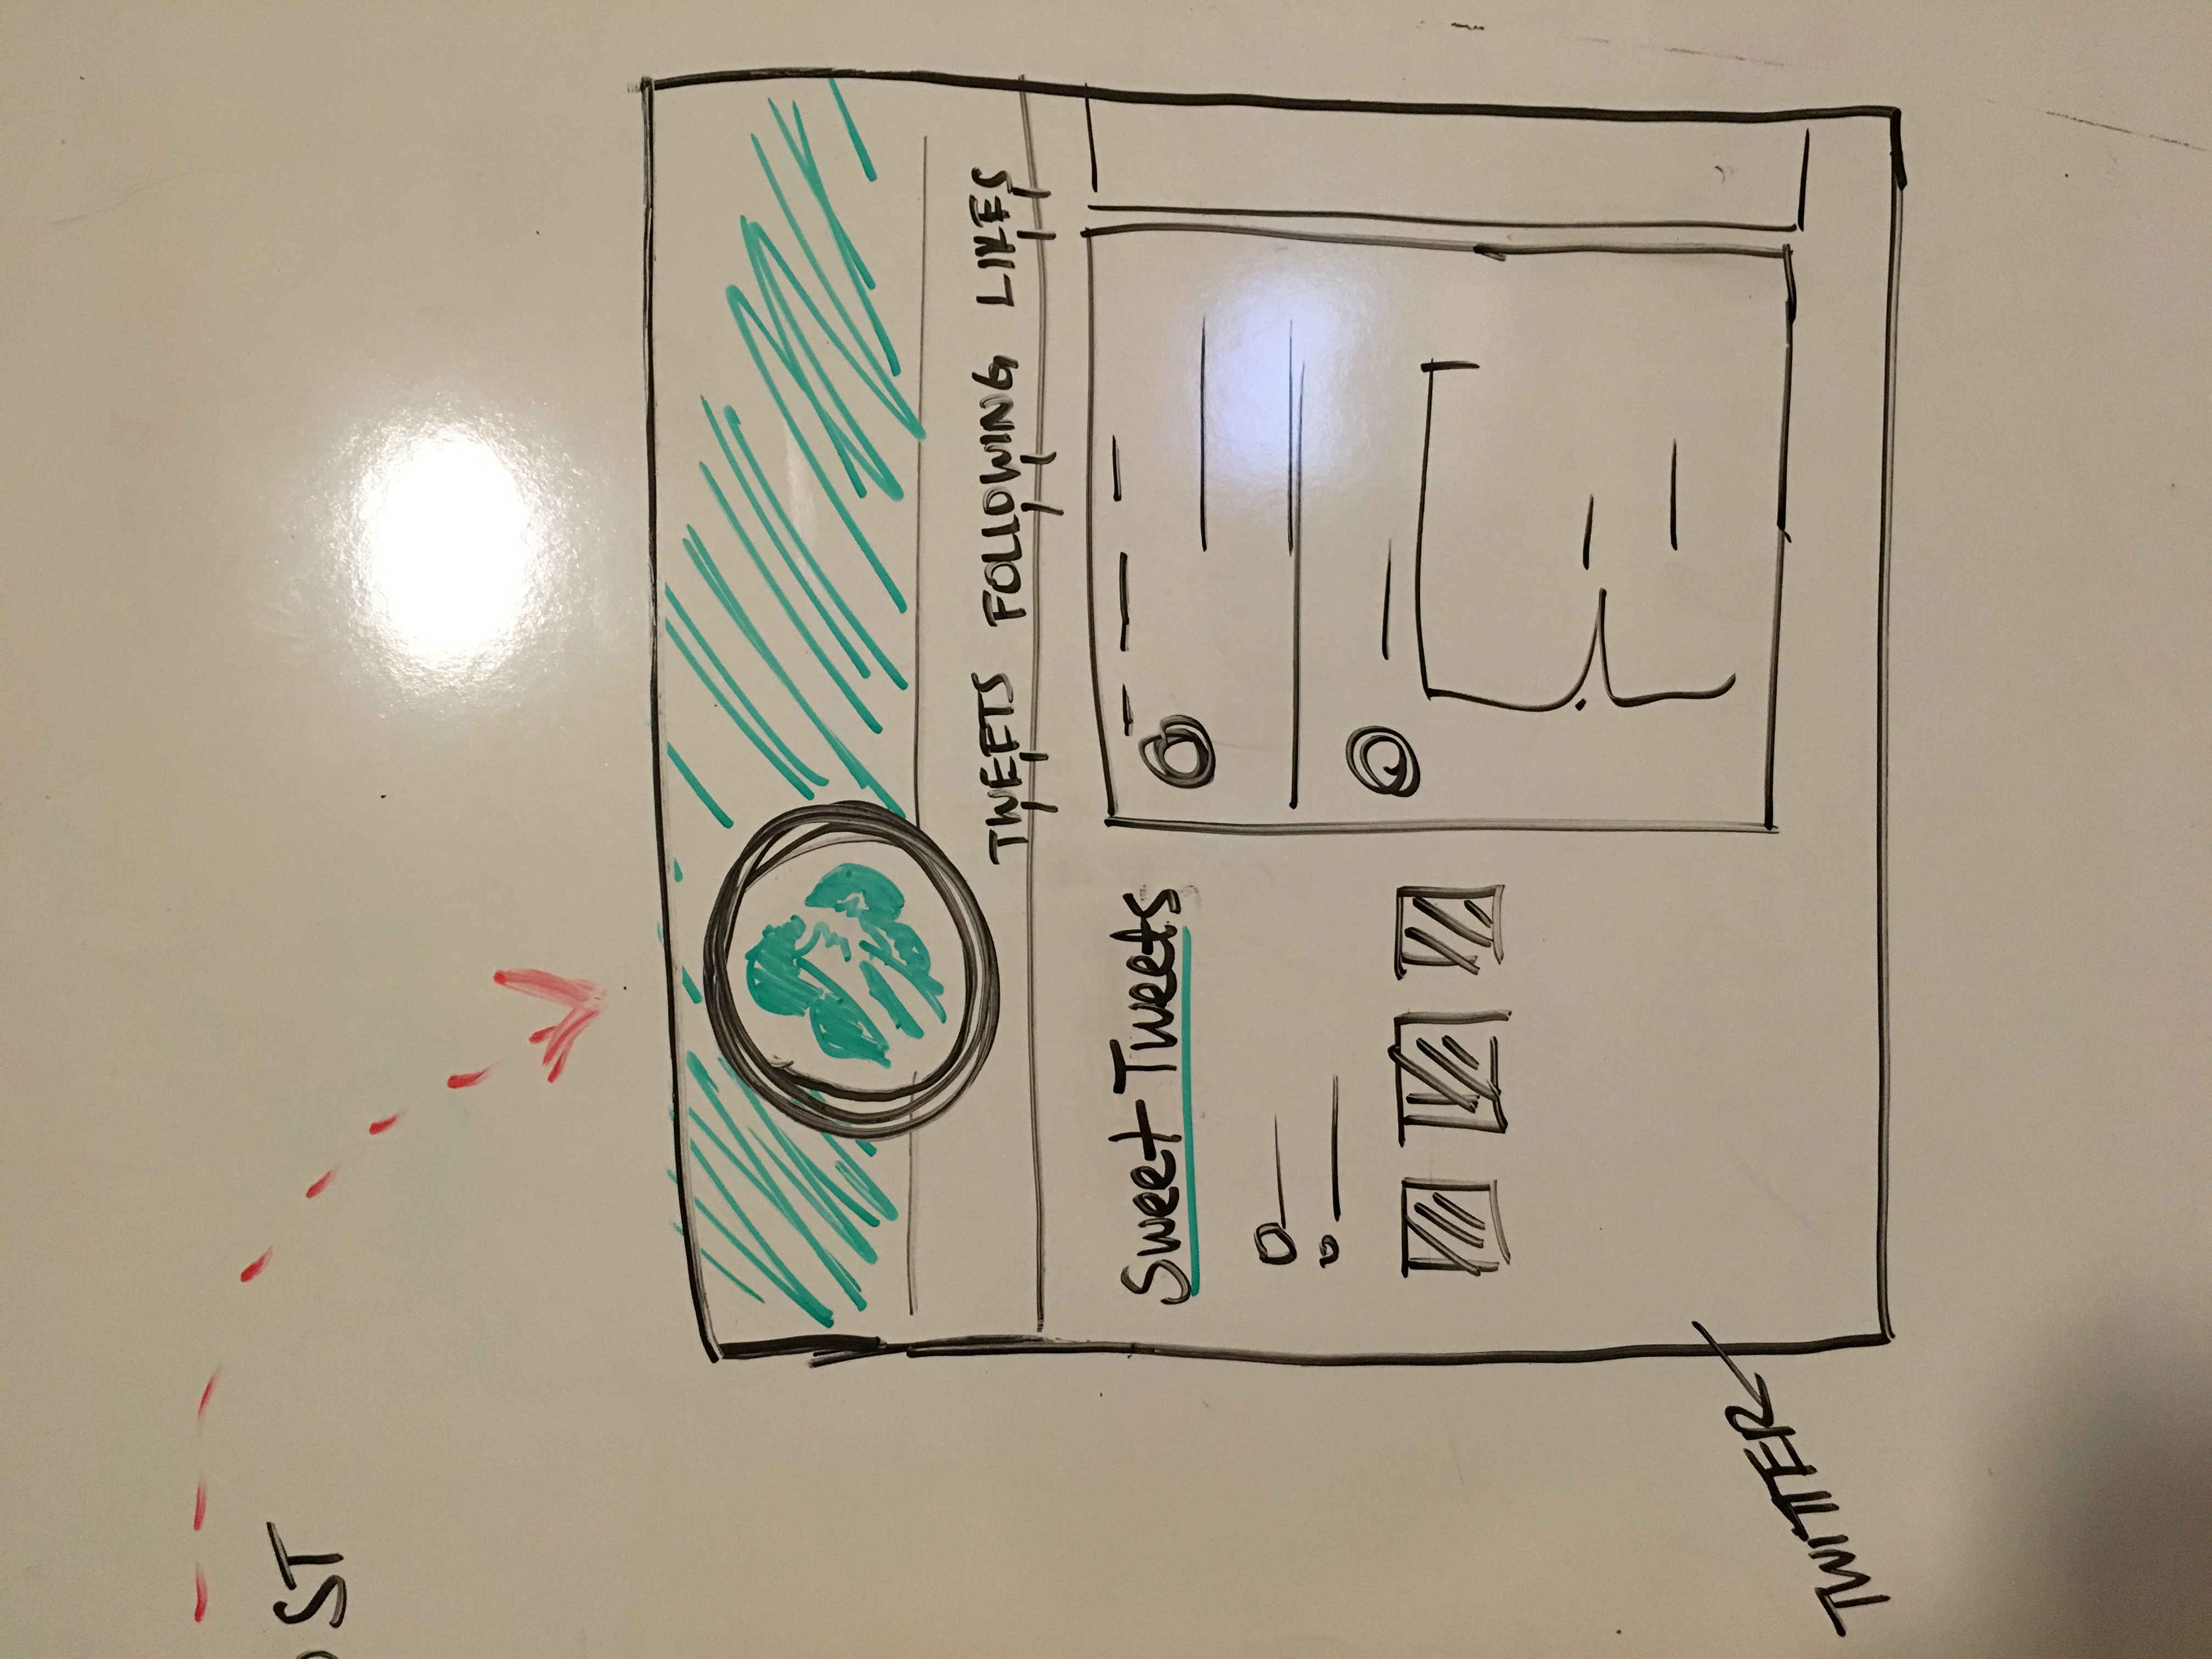 OST
TWEETS FOLLOWING LIKES
Sweet Tweets
TWITTER